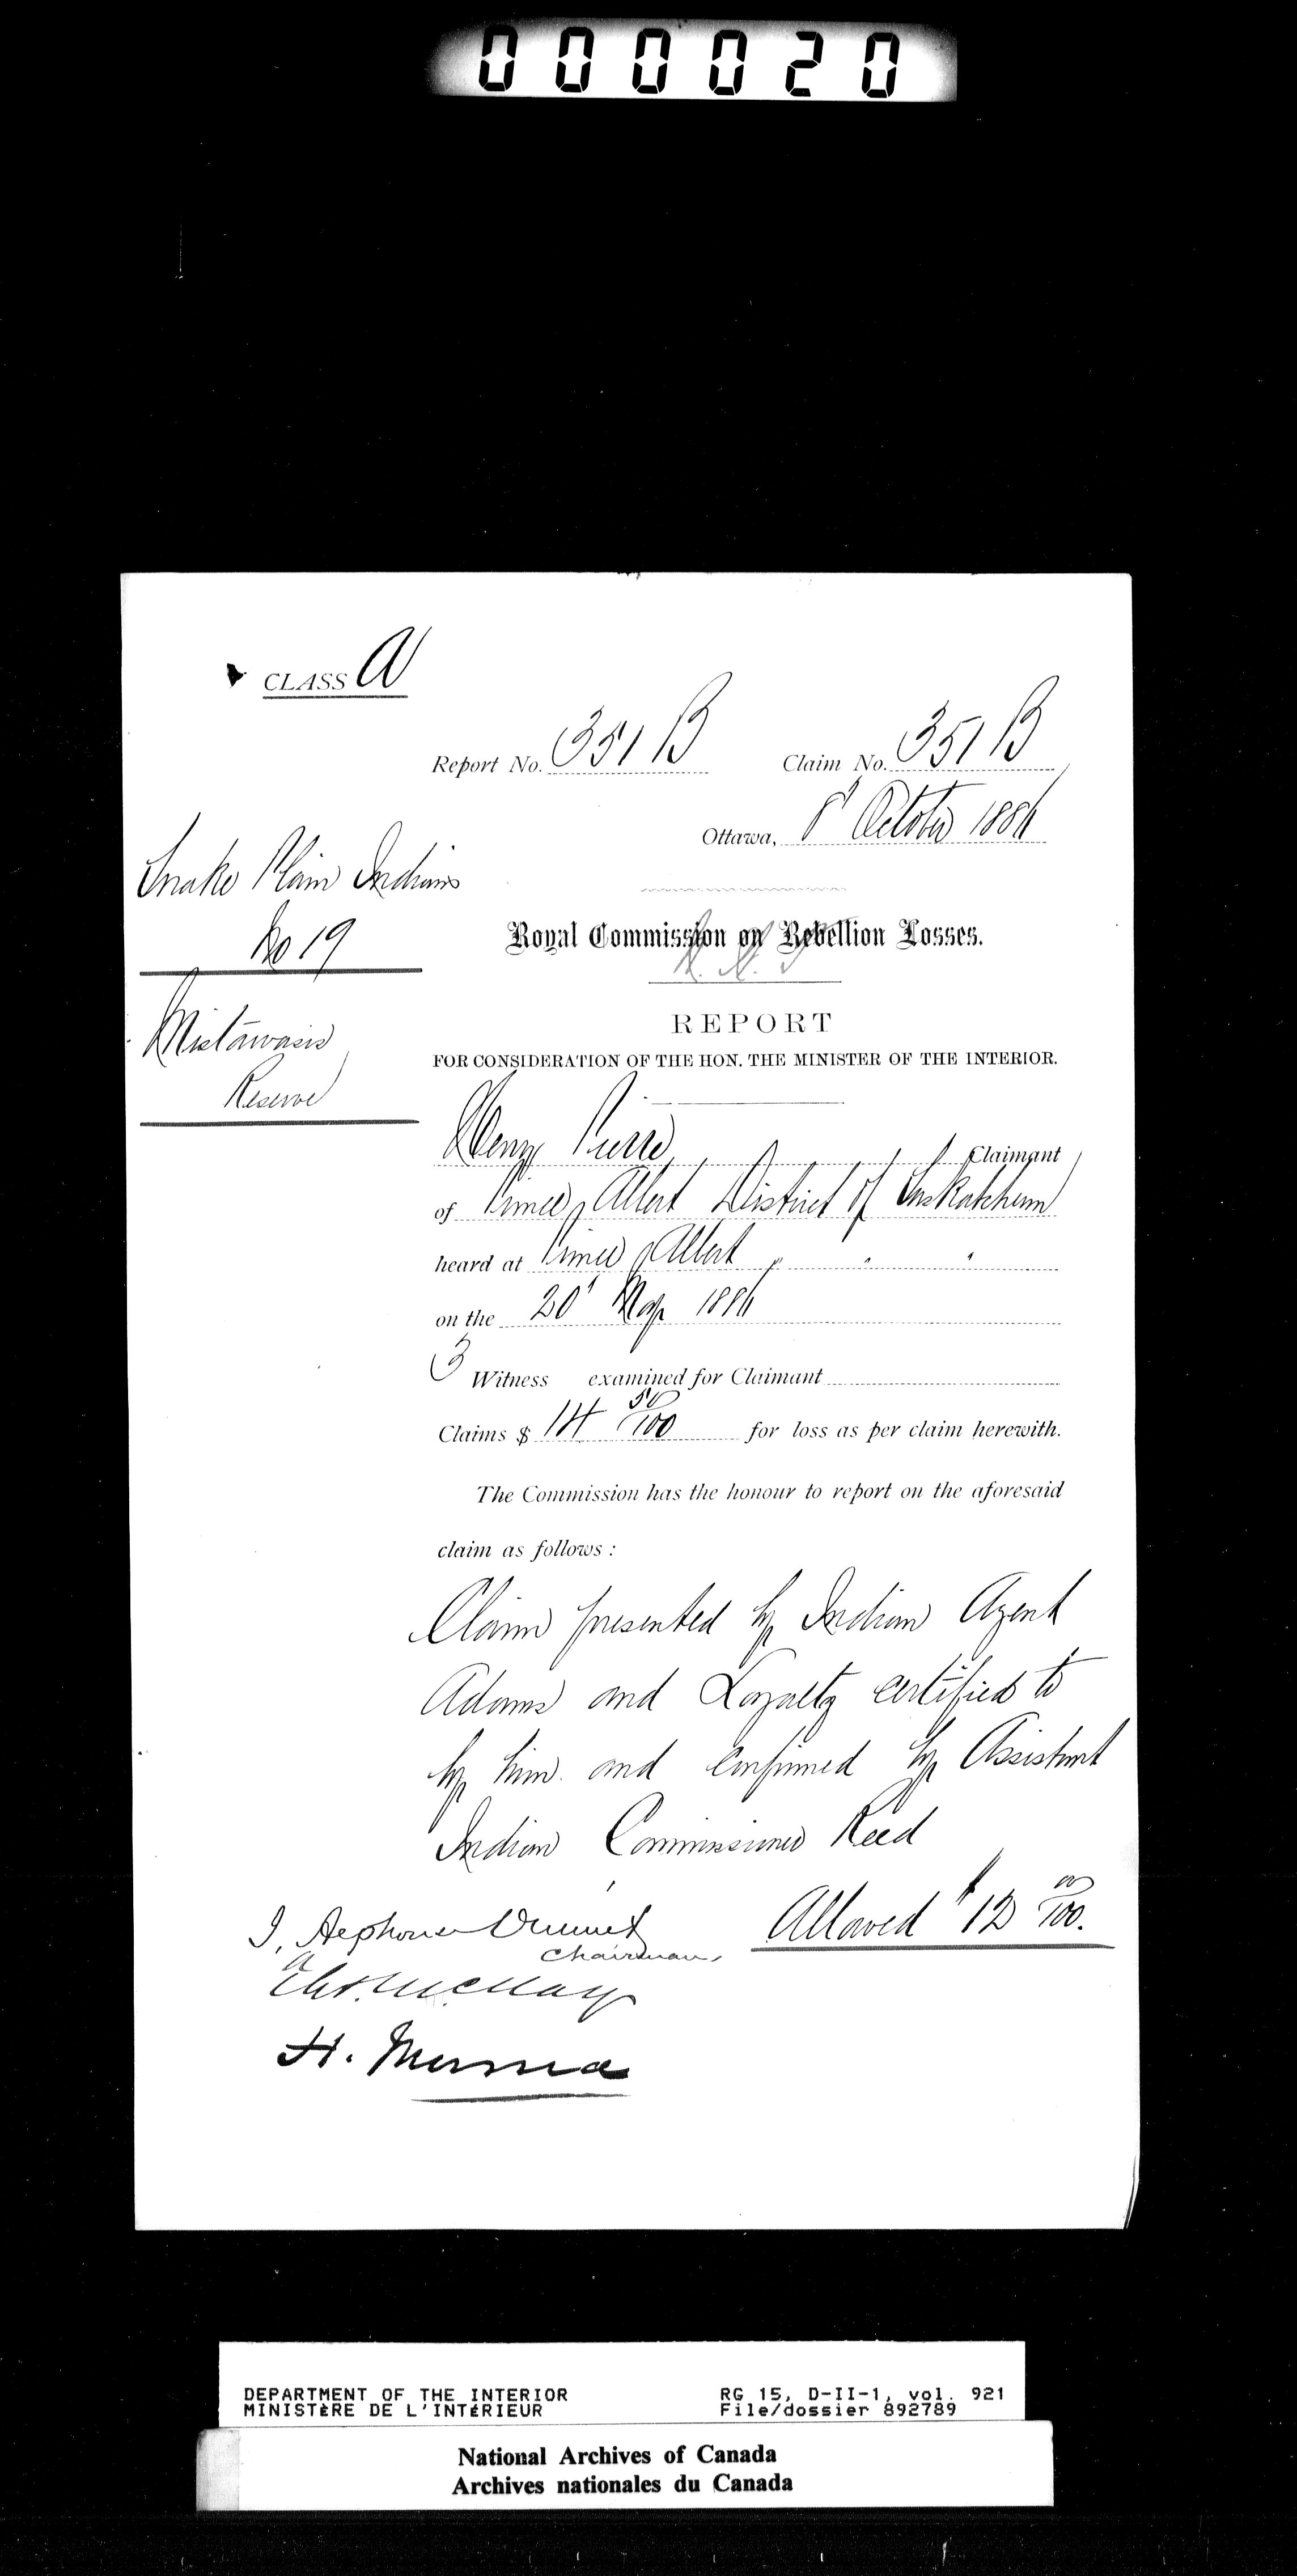 000020
CLASS A
Report No. 351 B Claim No. 351 B
Ottawa, 8' October 1886
Snake Plain Indians
No 19
Royal Commission on Rebellion Losses.
Mistawasis
Reserve
REPORT
FOR CONSIDERATION OF THE HON. THE MINISTER OF THE INTERIOR.
Henry Pierre Claimant
of Prince Albert District of Saskatchewan
heard at Prince Albert " " "
on the 20' May 1886
3 Witness examined for Claimant
Claims $ 14 50/100 for loss as per claim herewith.
The Commission has the honour to report on the aforesaid
claim as follows :
Claim presented by Indian Agent
Adams and Loyalty certified to
by him and confirmed by Assistant
Indian Commissioner Reed
Allowed $ 12 00/100.
J. Alphonse Ouimet
Chairman
Thos. McKay
H. Muma
DEPARTMENT OF THE INTERIOR RG 15, D-II-1, vol. 921
MINISTÈRE DE L'INTÉRIEUR File/dossier 892789
National Archives of Canada
Archives nationales du Canada